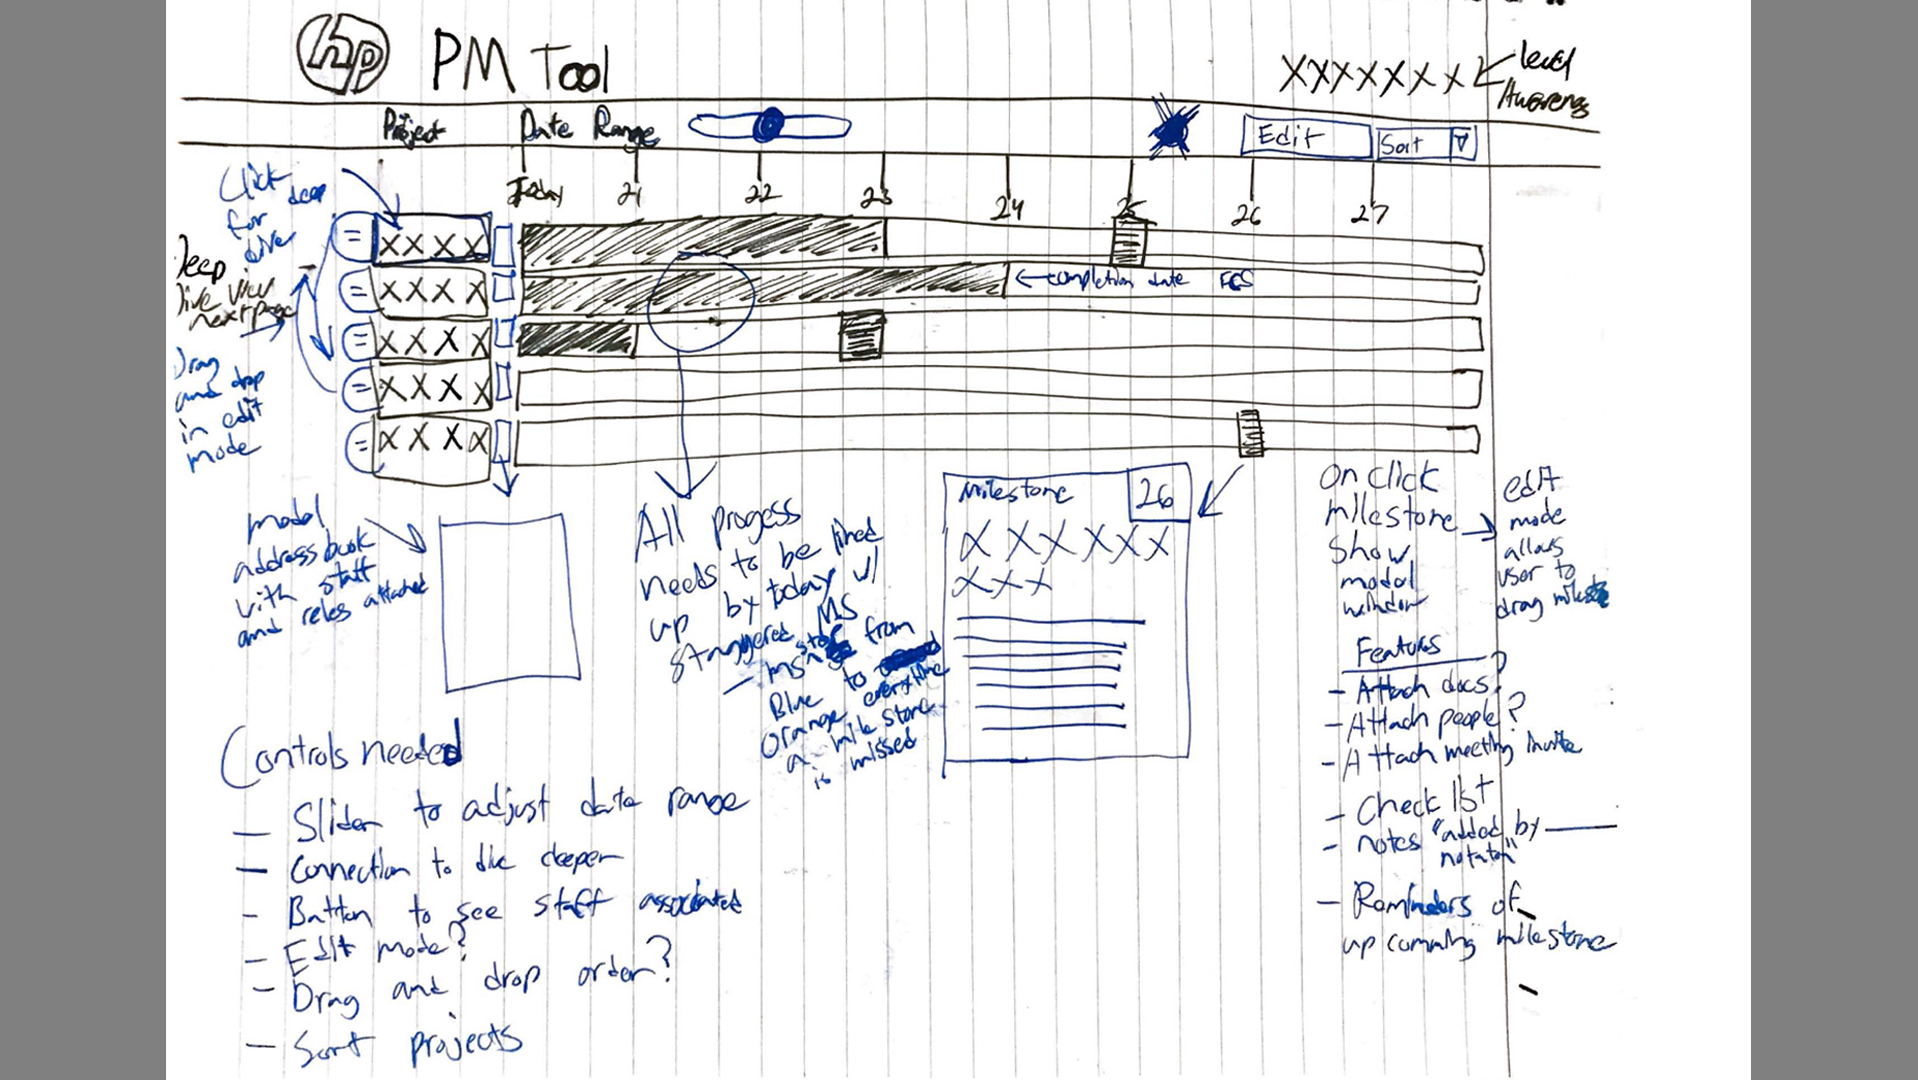 hp PM Tool
XXXXXXX
level
Awareness
Project
Date Range
Edit
Sort
Today 21 22 23 24 25 26 27
Click
for deep
dive
Deep
Dive view
next page
Drag
and drop
in edit
mode
XXXX
XXXX
XXXX
XXXX
XXXX
completion date FCS
modal
address book
with staff
and roles attached
All progess
needs to be lined
up by today w/
staggered MS
- MS star from
Blue to
orange everytime
a mile stone
is missed
Milestone 26
XXXXXX
XXX
On click
milestone
show
modal
window
edit
mode
allows
user to
drag
Features
- Attach docs?
- Attach people?
- Attach meeting invite
- Check list
- notes "added by
notaton"
- Reminders of
up comming milestone
-
Controls needed
- Slider to adjust date range
- Connection to dive deeper
- Button to see staff associated
- Edit mode?
- Drag and drop order?
- Sort projects